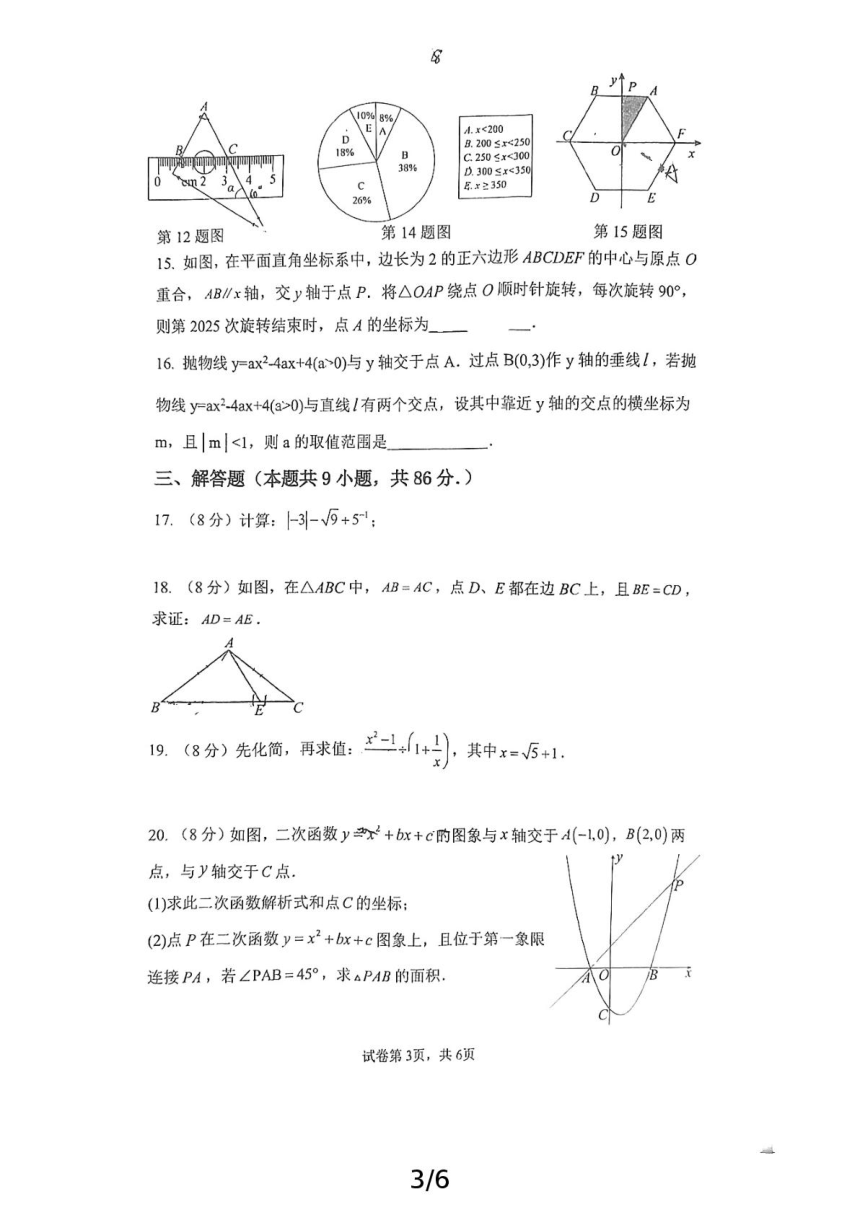 A
B
C
0
cm 2
3
4
5
α
10%
8%
E
A
D
18%
B
38%
C
26%
A. x<200
B. 200≤x<250
C. 250≤x<300
D. 300≤x<350
E. x≥350
y
P
B
A
C
O
F
x
D
E
第 12 题图
第 14 题图
第 15 题图
15. 如图,在平面直角坐标系中,边长为 2 的正六边形 ABCDEF 的中心与原点 O
重合,AB//x 轴,交 y 轴于点 P.将△OAP 绕点 O 顺时针旋转,每次旋转 90°,
则第 2025 次旋转结束时,点 A 的坐标为____ ___.
16. 抛物线 y=ax²-4ax+4(a>0)与 y 轴交于点 A.过点 B(0,3)作 y 轴的垂线 l,若抛
物线 y=ax²-4ax+4(a>0)与直线 l 有两个交点,设其中靠近 y 轴的交点的横坐标为
m,且|m|<1,则 a 的取值范围是____________.
三、解答题(本题共 9 小题,共 86 分.)
17. (8 分)计算:|-3|-√9+5⁻¹;
18. (8 分)如图,在△ABC 中,AB=AC,点 D、E 都在边 BC 上,且 BE=CD,
求证:AD=AE.
A
B
E
C
19. (8 分)先化简,再求值: x²-1 ÷(1+1/x),其中 x=√5+1.
20. (8 分)如图,二次函数 y=x²+bx+c 的图象与 x 轴交于 A(-1,0),B(2,0)两
点,与 y 轴交于 C 点.
(1)求此二次函数解析式和点 C 的坐标;
(2)点 P 在二次函数 y=x²+bx+c 图象上,且位于第一象限
连接 PA,若∠PAB=45°,求△PAB 的面积.
y
P
A
O
B
x
C
试卷第 3页,共 6页
3/6